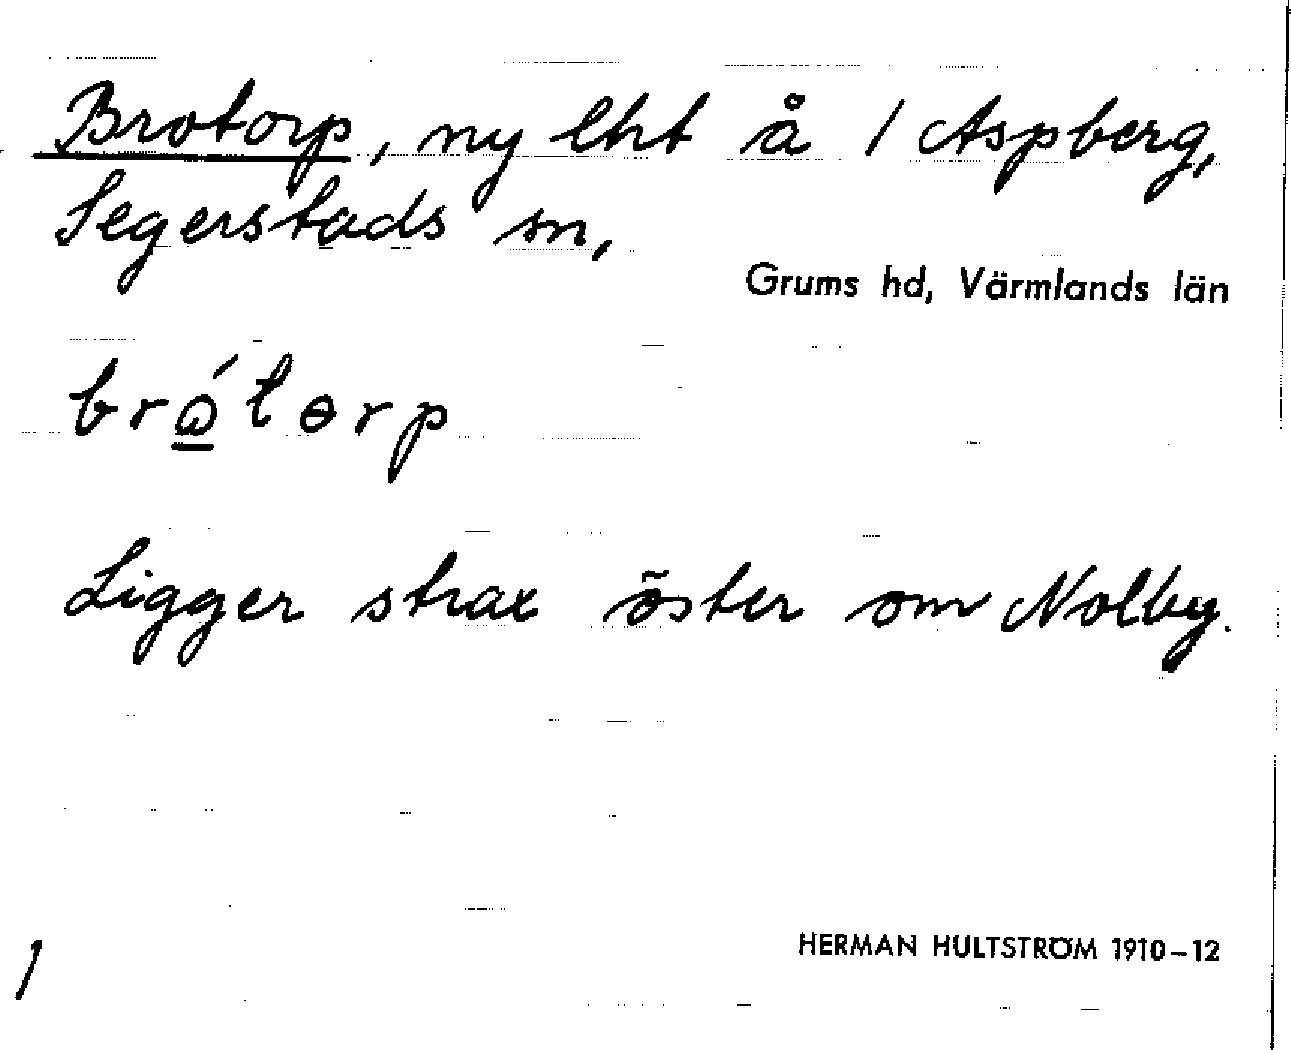 Brotorp, ny lht å 1 Aspberg,
Segerstads sn,
Grums hd, Värmlands län
brɷ́torp
Ligger strax öster om Nolby.
HERMAN HULTSTRÖM 1910–12
1